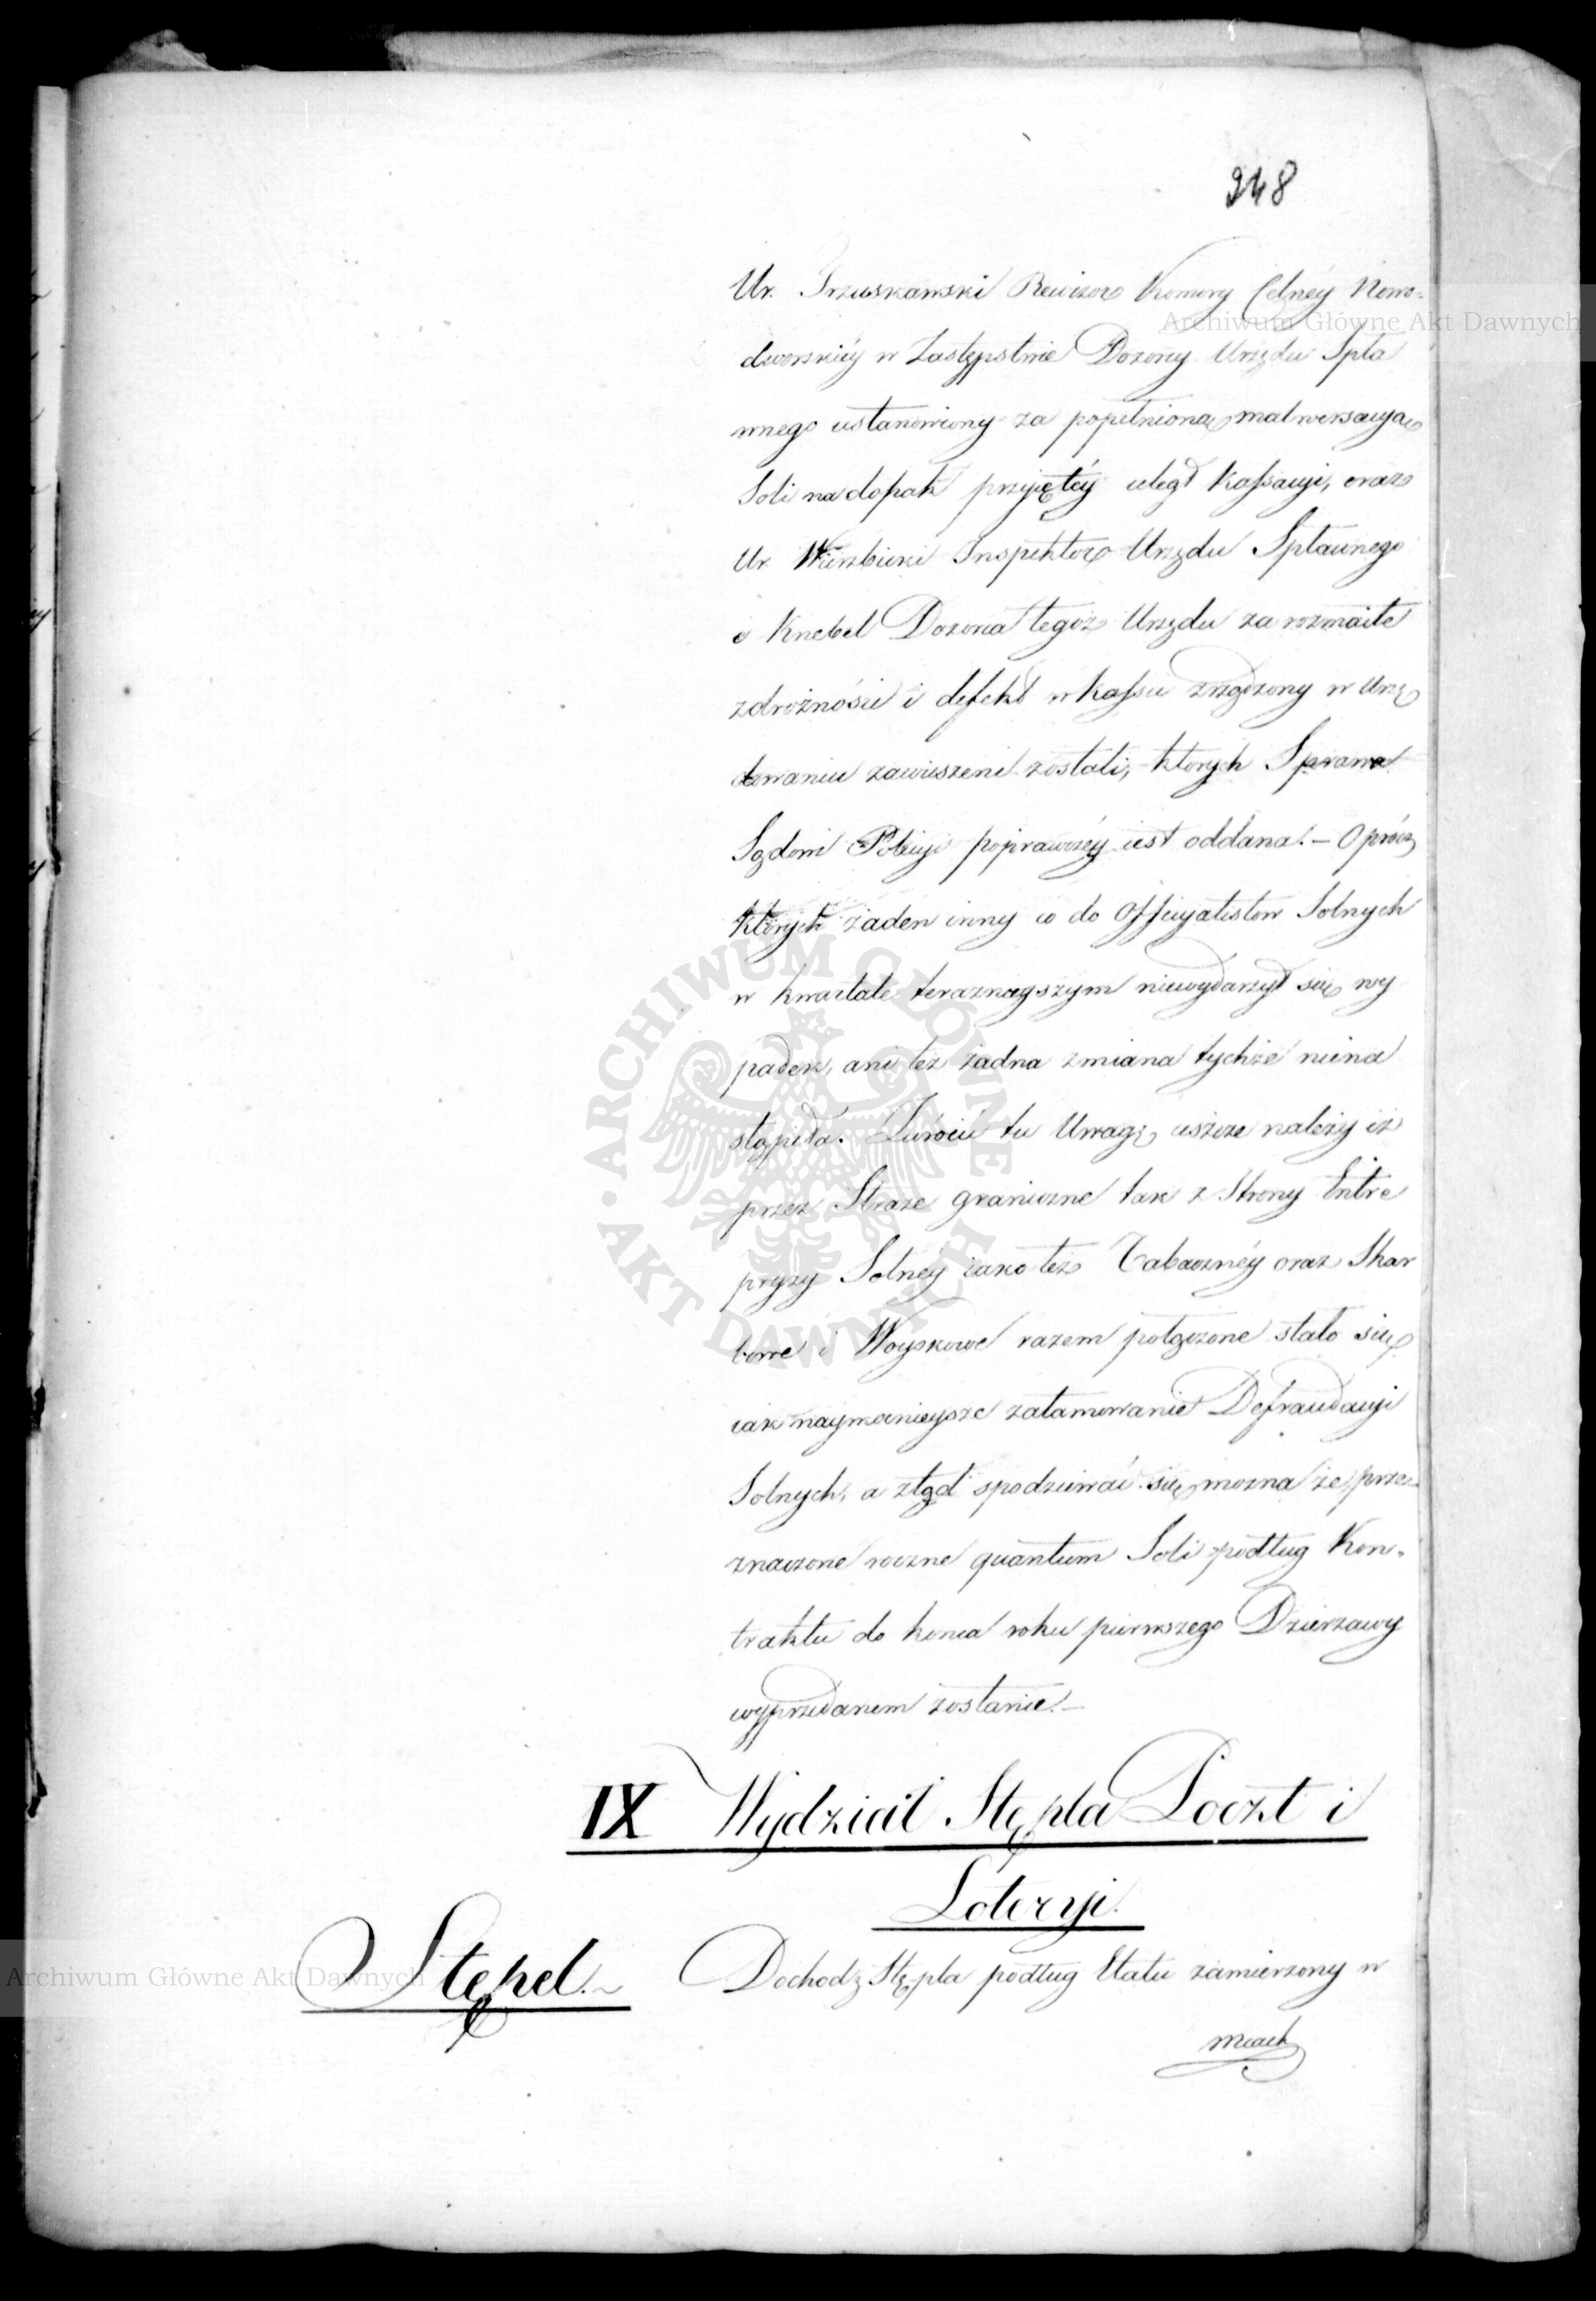 248
Ur. Trzuskawski Rewizor Komory Celnéy Nowo-
dworskiéy w Zastępstwie Dozorcy Urzędu Spła
wnego ustanowiony za popełnioną malwersacyą
Soli na dopak przyiętéy uległ Kassacyi, oraz
Ur. Wierzbicki Inspektor Urzędu Spławnego
i Knebel Dozorca tegoż Urzędu za rozmaite
zdrożności i defekt w Kassie zrządzony w Urzę
dowaniu zawieszeni zostali, których Sprawa
Sądowi Policyi poprawczéy iest oddana. – Oprócz
których żaden inny co do Officyalistow Solnych
w kwartale teraznieyszym niewydarzył się wy
padek, ani też żadna zmiana tychże niena
stąpiła. Zwrócić tu Uwagę ieszcze należy iż
przez Straże graniczne tak z Strony Entre
pryzy Solnéy iako też Tabacznéy oraz Skar
bowe i Woyskowe razem połączone stało się
iak naymocnieysze zatamowanie Defraudacyi
Solnych, a ztąd spodziewać się można że prze-
znaczone roczne quantum Soli podług Kon-
traktu do końca roku pierwszego Dzierzawy
wyprzedanem zostanie. –
IX Wydział Stępla Poczt i
Loteryi.
Stępel. Dochod z Stępla podług Etatu zamierzony w
miach
Archiwum Główne Akt Dawnych
Archiwum Główne Akt Dawnych
ARCHIWUM GŁÓWNE AKT DAWNYCH